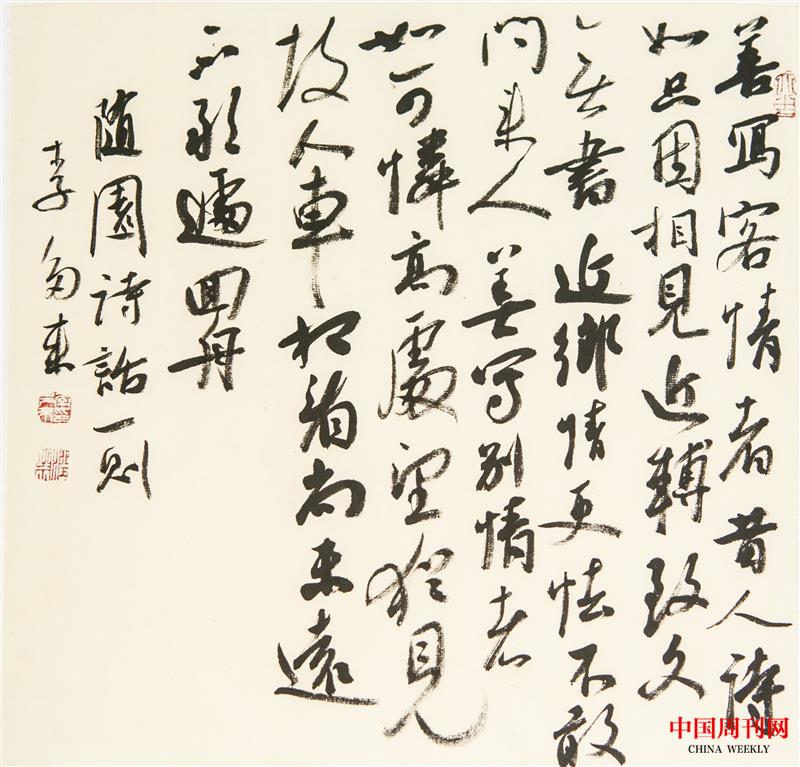 善寫客情者昔人詩
如只因相見近轉致久
無書近鄉情更怯不敢
問來人善寫別情者
如可憐高處望猶見
故人車相看尚未遠
不敢遽回舟
随園詩話一則
李
中国周刊网
CHINA WEEKLY